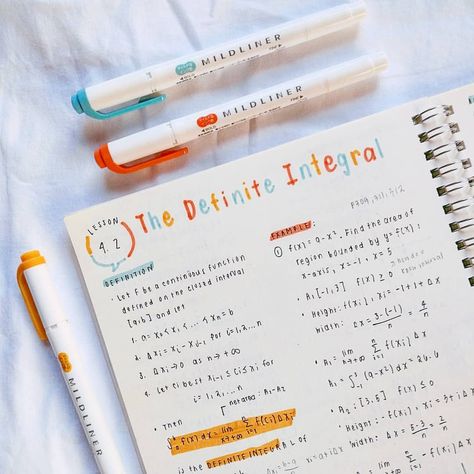 MILDLINER
MILDLINER
MILDLINER
LESSON
4.2
The Definite Integral
P309, 311, 312
DEFINITION
• Let f be a continuous function
defined on the closed interval
[a,b] and let
1. a = x₀ < x₁ ... < xₙ = b
2. Δxᵢ = xᵢ - xᵢ₋₁ for i = 1, 2, ... n
3. Δxᵢ → 0 as n → +∞
4. Let cᵢ be st xᵢ₋₁ ≤ cᵢ ≤ xᵢ for
i = 1, 2, ... n
net area: A₁ - A₂
• Then
∫ f(x) dx = lim n→+∞ Σ f(cᵢ) Δxᵢ
is the DEFINITE INTEGRAL of
EXAMPLE:
① f(x) = 9 - x². Find the area of
region bounded by y = f(x),
x-axis, x = -1, x = 5
• A₁ [-1, 3] f(x) ≥ 0
• Height: f(xᵢ), xᵢ = -1 + i Δx
Width: Δx = 3-(-1)/n = 4/n
• A₁ = lim n→+∞ Σ f(xᵢ) Δx
• A₁ = ∫ (9-x²) dx =
• A₂: [3, 5] f(x) ≤ 0
• Height: - f(xᵢ), xᵢ = 3 + i Δx
• Width: Δx = 5-3/n = 2/n